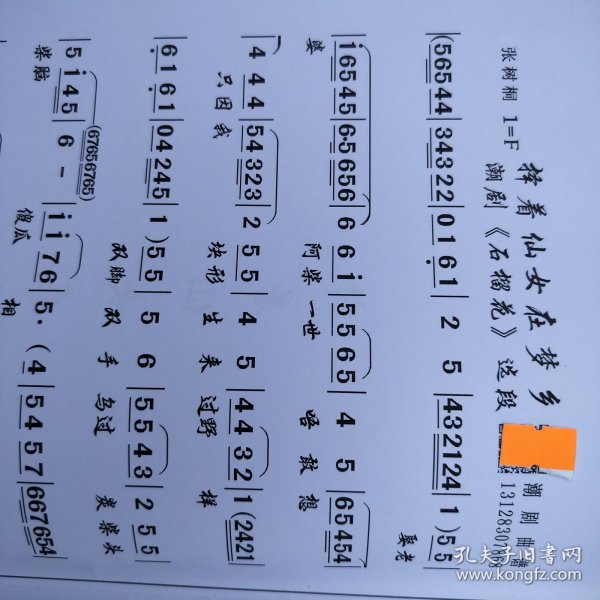 择着仙女在梦乡
潮剧《石榴花》选段
张树桐 1=F
潮剧曲谱
(56544|34322|0161|2 5|432124|1)55|
娶老
i6545|6·5656|6 6i|5565|4 5|65454|
婆 阿柴一世 唔敢想
4 44|54323|2 55|4 5|4432|1(2421|
只因我 块形生来过野样
6161|04245|1)55|5 6|5543|2 55|
双脚双手乌过炭柴头
5i45|6 -|ii76|5·(4|5457|667654|
(67656765)
柴脑 傻瓜 相
孔夫子旧书网
www.kongfz.com